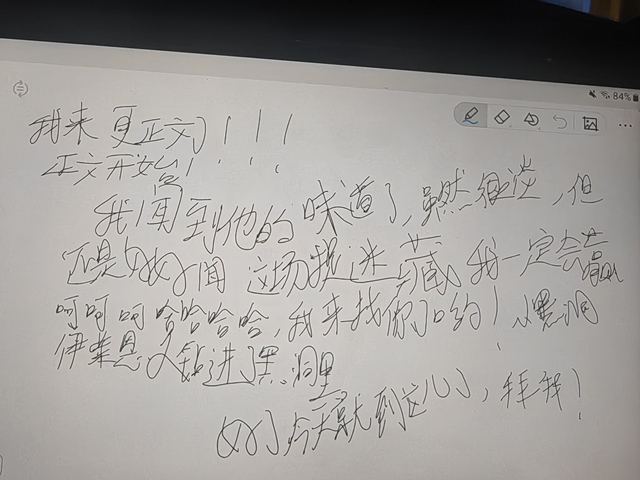 84%
我来更正文了！！！
正文开始！！！
我闻到他的味道了，虽然很淡，但
还是好好闻 这场捉迷藏 我一定会赢
呵呵呵哈哈哈哈，我来找你了 约！从黑洞
伊莱恩又钻进了黑洞里
好了今天就到这儿了，拜我！